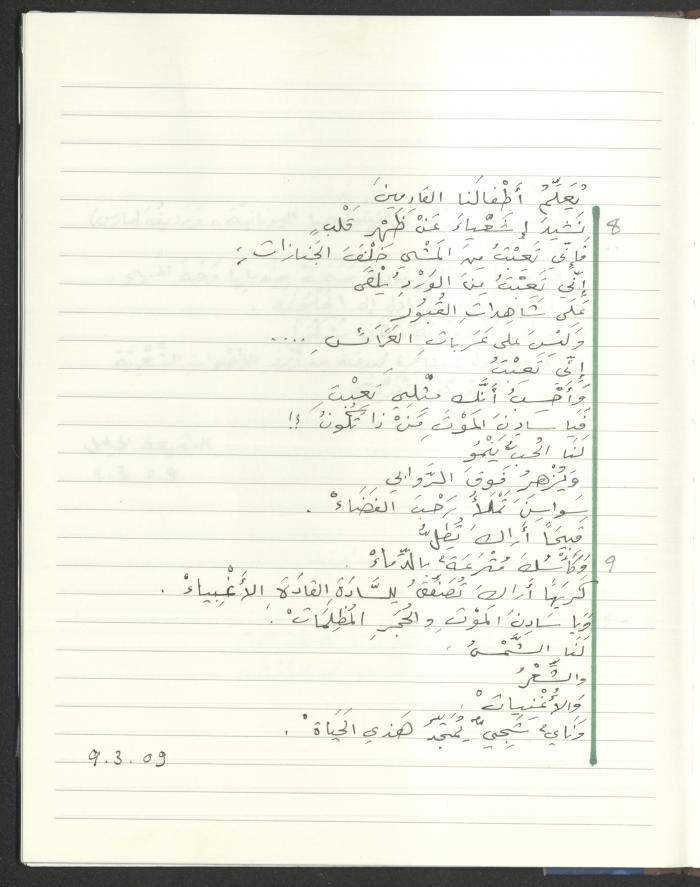 يُعَلِّمُ أَطْفَالَنا القادِمِينَ
8 نَشيدَ إِشَعْياءَ عَنْ ظَهْرِ قَلْبٍ
فَإِنّي تَعِبْتُ مِنَ المَشْيِ خَلْفَ الجَنازاتِ ،
إِنّي تَعِبْتُ مِنَ الوَرْدِ يُلْقَى
عَلَى شَاهِداتِ القُبُورِ
وَلَيْسَ على عَرَباتِ العَرَائسِ ....
إِنّي تَعِبْتُ
وَأَحْسَبُ أَنَّكَ مِثْلِي تَعِبْتَ
فَيا سادِنَ المَوْتِ مَنْ ذا تَكُونُ ؟!
لَنَا الحُبُّ يَنْمُو
وَيُزْهِرُ فَوقَ الرَّوابي
سَواسِنَ تَمْلَأُ رَحْبَ الفَضَاءْ .
قَبِيحَاً أَراكَ تُطِلُّ
9 وَكَأْسُكَ مُتْرَعَةٌ بالدِّماءْ .
كَرِيهَاً أَراكَ تُصَفِّقُ لِلسَّادَةِ القادَةِ الأَغْبِياءْ .
وَيا سادِنَ المَوْتِ والحُجَرِ المُظْلِمَاتْ .
لَنَا الشَّمْسُ ،
والشِّعْرُ
وَالأُغْنِياتْ ،
وَنايٌ شَجِيٌّ يُمَجِّدُ هَذي الحَيَاةْ .
9.3.09